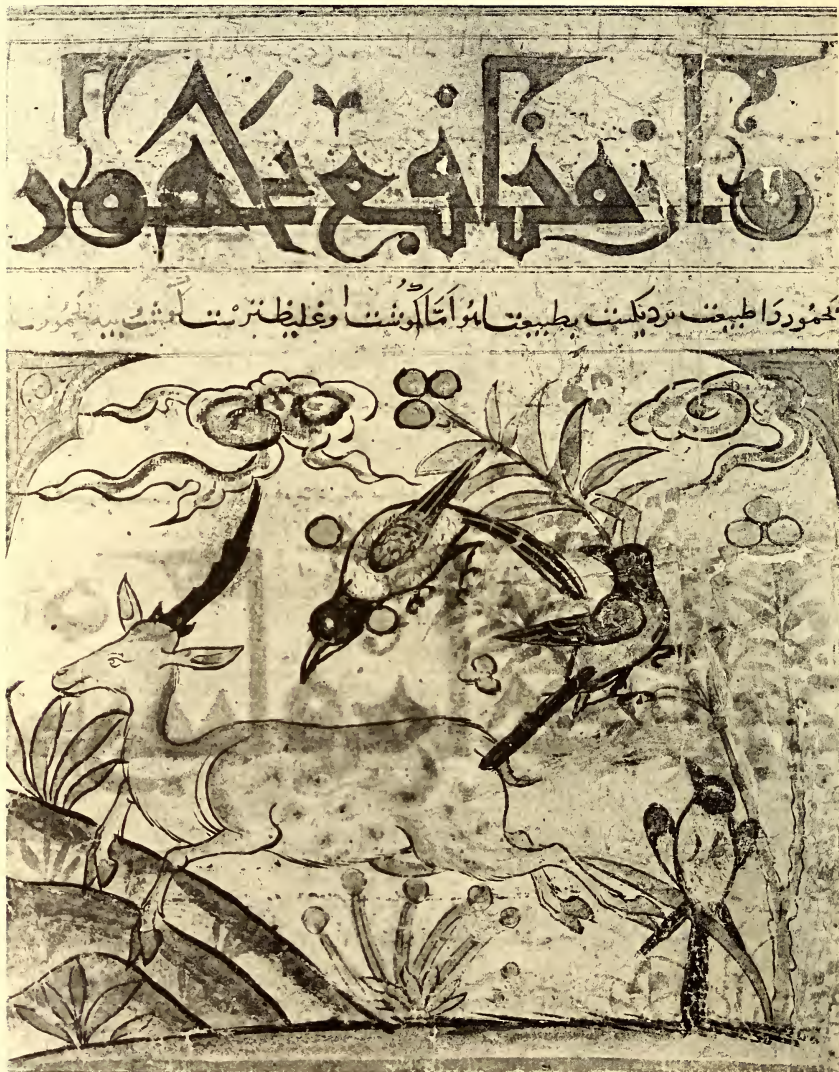 از منافع یحمور
یحمور را طبیعت نزدیکست بطبیعت آهو اما گوشت او غلیظترست گوشت پیه یحمور